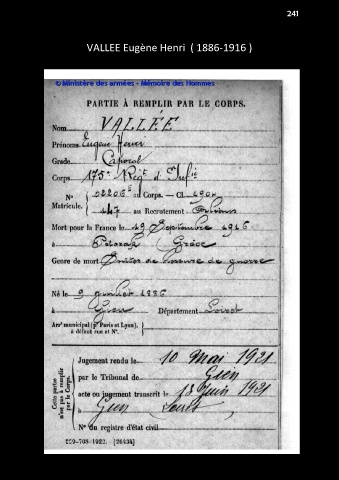 241
VALLEE Eugène Henri ( 1886-1916 )
© Ministère des armées - Mémoire des Hommes
PARTIE À REMPLIR PAR LE CORPS.
Nom VALLÉE
Prénoms Eugène Henri
Grade Caporal
Corps 175e Régt d'Infie
N° 02206 au Corps. — Cl. 1904
Matricule. 447 au Recrutement Orléans
Mort pour la France le 19 Septembre 1916
à Petorak Grèce
Genre de mort Suites de blessure de guerre
Né le 9 janvier 1886
à Gien Département Loiret
Arrt municipal (pr Paris et Lyon),
à défaut rue et N°.
Cette partie
n'est pas à remplir
par le Corps.
Jugement rendu le 10 Mai 1921
par le Tribunal de Gien
acte ou jugement transcrit le 13 Juin 1921
à Gien Loiret
N° du registre d'état civil